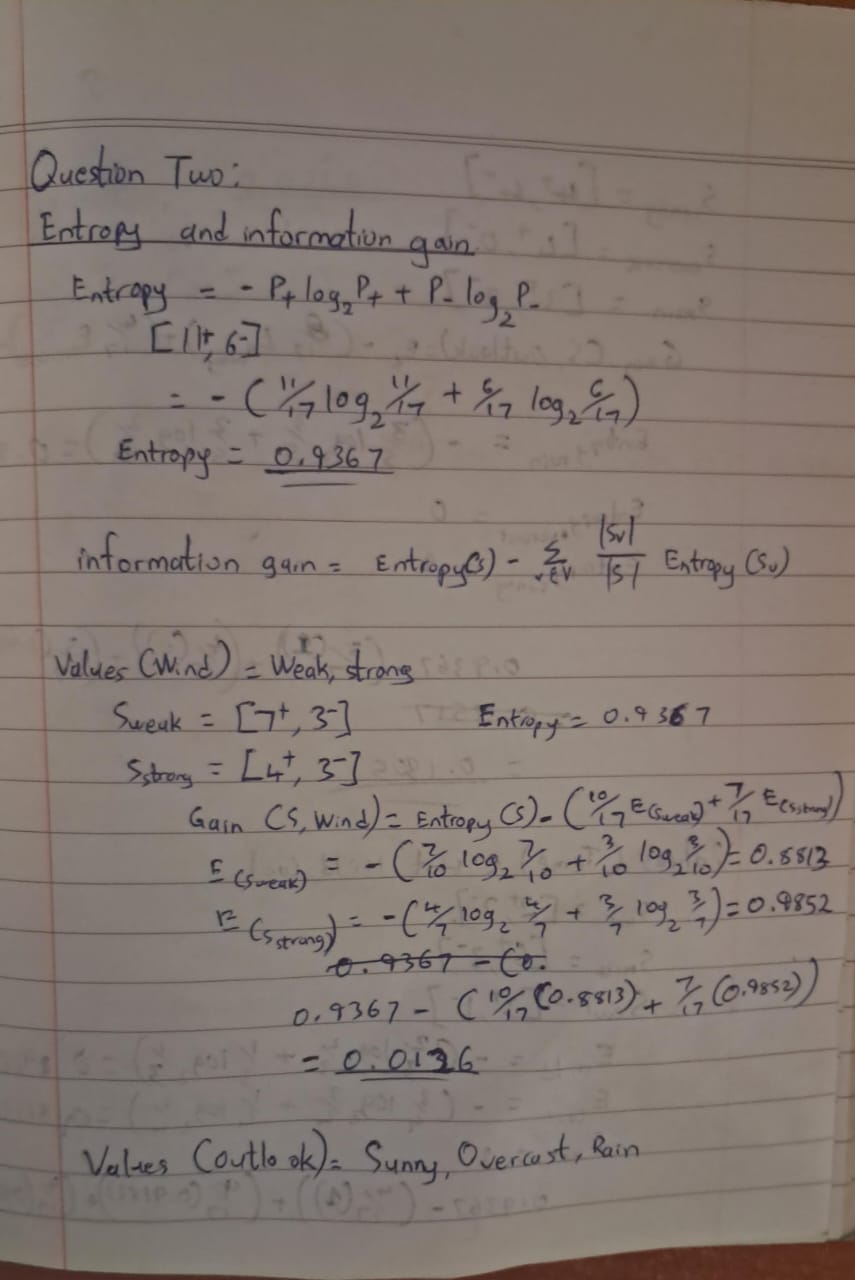 Question Two:
Entropy and information gain
Entropy = - P+ log₂ P+ + P- log₂ P-
[11+, 6-]
= - (11/17 log₂ 11/17 + 6/17 log₂ 6/17)
Entropy = 0.9367
information gain = Entropy(s) - Σ v∈V |Sv|/|S| Entropy (Sv)
Values (Wind) = Weak, strong
Sweak = [7+, 3-] Entropy = 0.9367
Sstrong = [4+, 3-]
Gain (S, Wind) = Entropy (S) - (10/17 E(Sweak) + 7/17 E(Sstrong))
E(Sweak) = - (7/10 log₂ 7/10 + 3/10 log₂ 3/10) = 0.8813
E(Sstrong) = - (4/7 log₂ 4/7 + 3/7 log₂ 3/7) = 0.9852
0.9367 - (0.
0.9367 - (10/17 (0.8813) + 7/17 (0.9852))
= 0.0126
Values (outlook) = Sunny, Overcast, Rain